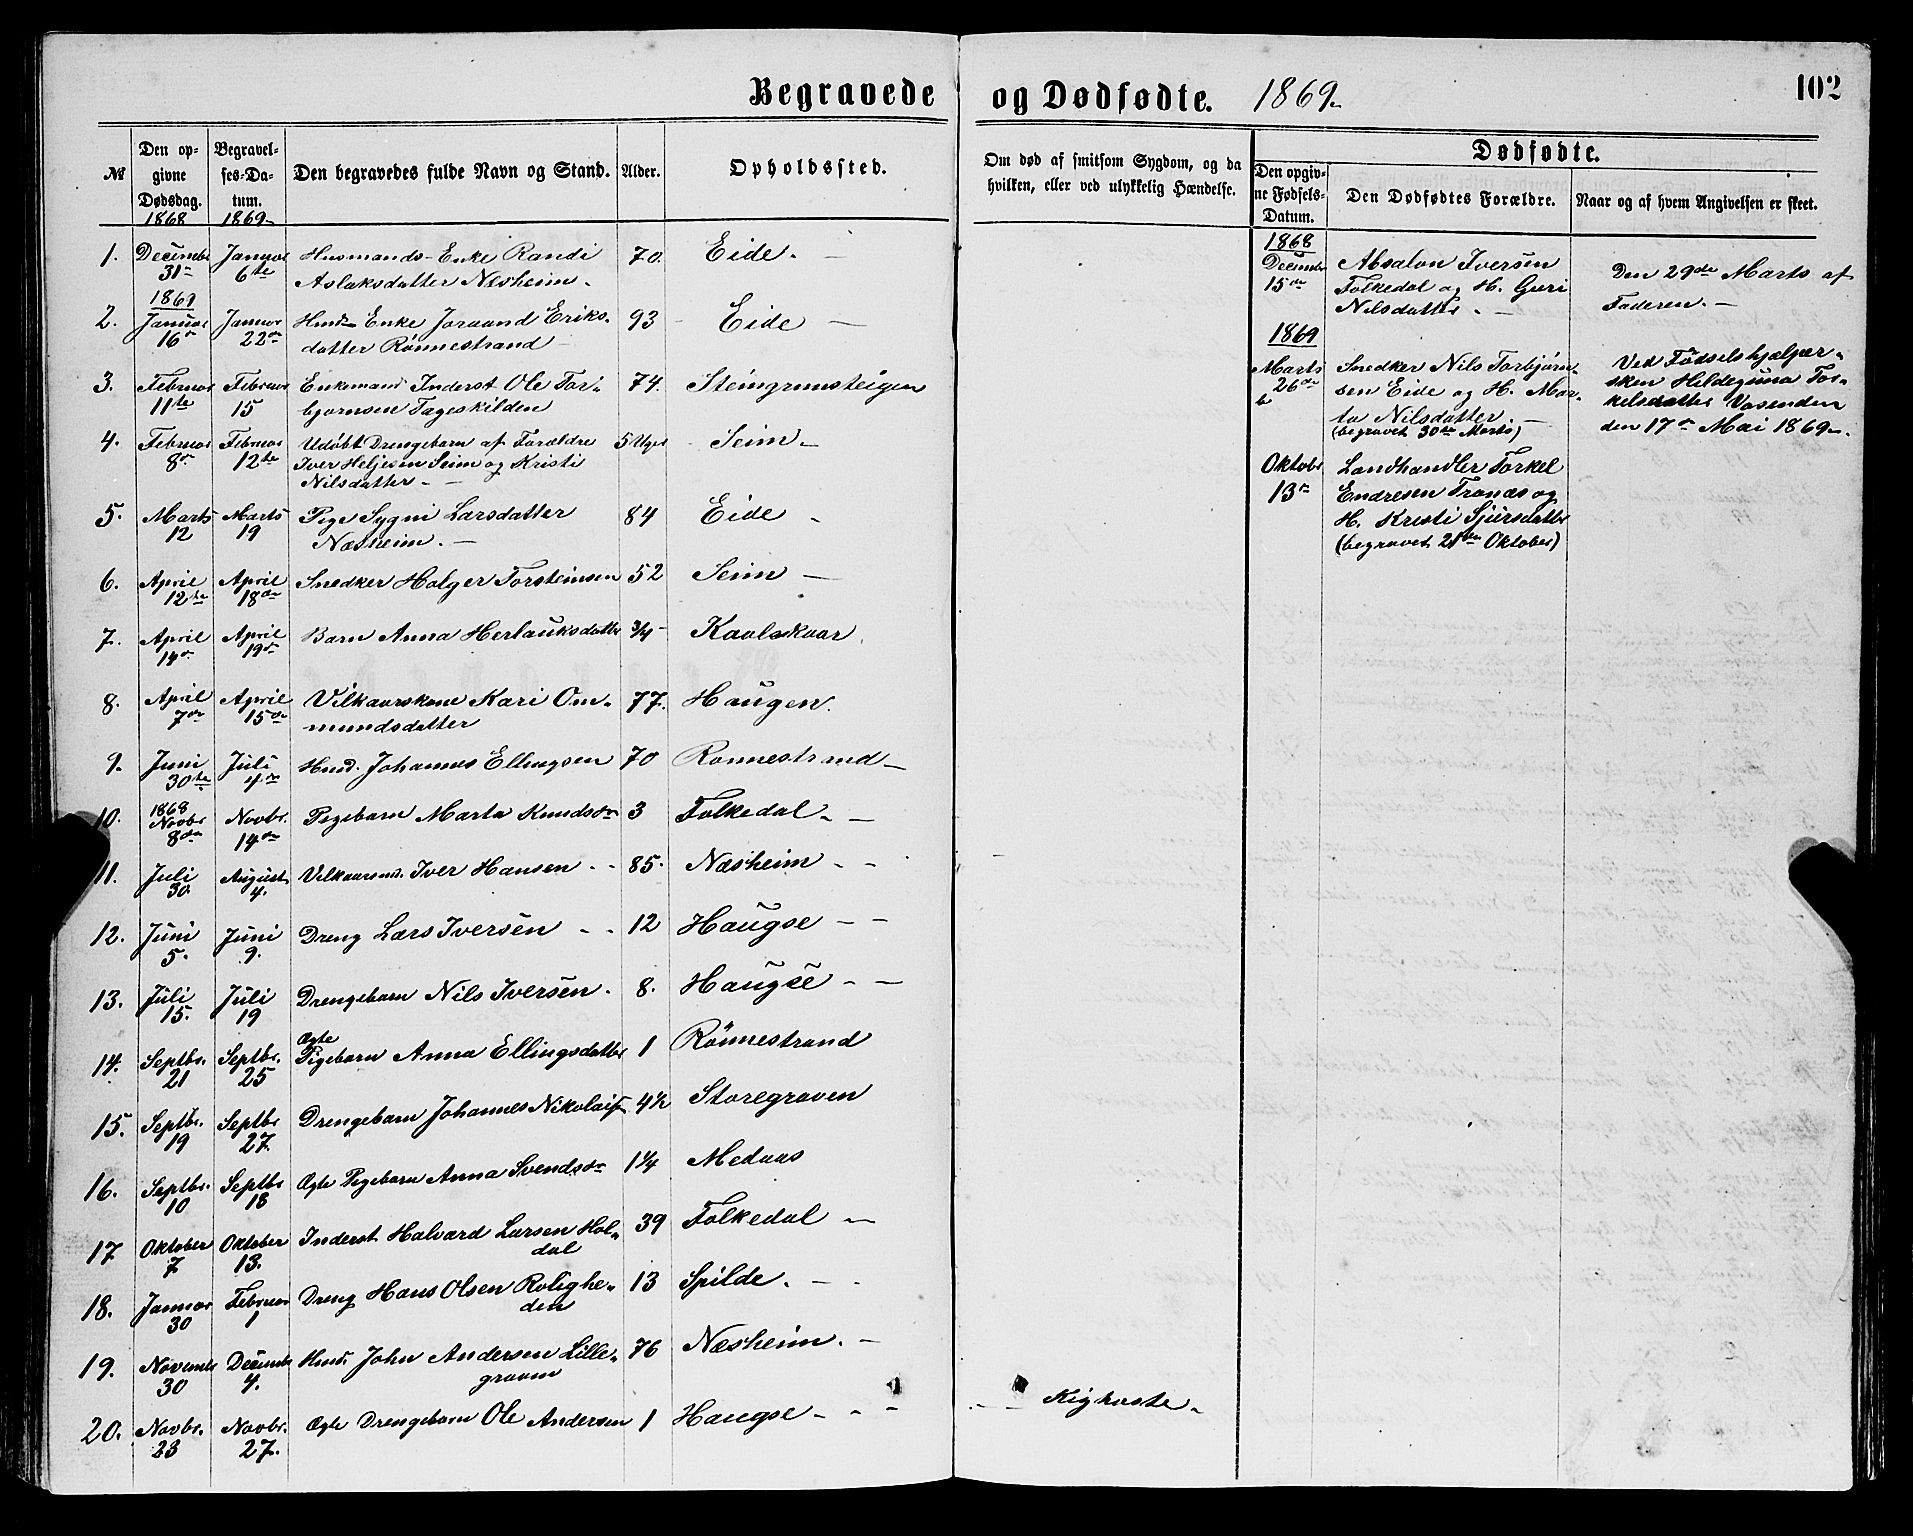 Begravede og Dødfødte. 1869 102
№ Den opgivne Dødsdag. 1868 Begravelses-Datum. 1869 Den begravedes fulde Navn og Stand. Alder. Opholdssted. Om død af smitsom Sygdom, og da hvilken, eller ved ulykkelig Hændelse.
Dødfødte.
Den opgivne Fødsels-Datum. Den Dødfødtes Forældre. Naar og af hvem Angivelsen er skeet.
1. Decembr 31 Januar 6te Husmands-Enke Randi 70. Eide.
Aslaksdatter Næsheim
1869
2. Januar 16 Januar 22 Hmd Enke Joraand Eriks- 93 Eide
datter Rønnestrand
3. Februar 11te Februar 15 Enkemand Inderst Ole Tor- 74. Steingrunsteigen
bjørnsen Tageskilden
4. Februar 8 Februar 12te Udøbt Drengebarn af Forældre 5 Uger Seim
Iver Heljesen Seim og Kristi
Nilsdatter
5. Marts 12 Marts 19 Pige Sygni Larsdatter 84 Eide
Næsheim.
6. April 12te April 18de Snedker Holger Torsteinsen 52 Seim
7. April 14 April 19 Barn Anna Herlauksdatter 3/4 Kaolskaar
8. April 7de April 15de Vilkaarskone Kari Om- 77. Haugen.
mundsdatter
9. Juni 30te Juli 4de Hmd. Johannes Ellingsen 70 Rønnestrand
1868
10. Novbr 8de Novbr. 14de Pigebarn Marta Knudsdr 3 Folkedal
11. Juli 30. August 4. Vilkaarsmd. Iver Hansen 85. Næsheim
12. Juni 5. Juni 9. Dreng Lars Iversen 12 Haugse
13. Juli 15. Juli 19 Drengebarn Nils Iversen 8. Haugse
14. Septbr. 21 Septbr. 25 Ægte Pigebarn Anna Ellingsdatter 1 Rønnestrand
15. Septbr. 19 Septbr 27. Drengebarn Johannes Nikolais 4 1/2 Storegraven
16. Septbr. 10 Septbr 18 Ægte Pigebarn Anna Svendsdr 1 1/4 Medaas
17 Oktober 7. Oktober 13. Inderst Halvard Larsen Hol- 39 Folkedal
dal
18. Januar 30 Februar 1 Dreng Hans Olsen Rolighe- 13 Spilde.
den
19. Novembr 30 Decembr 4. Hmd. John Andersen Lille- 76 Næsheim.
graven
20. Novbr. 23 Novbr. 27. Ægte Drengebarn Ole Andersen 1 Haugse Kighoste
1868
Decembr 15de Absalon Iversen Den 29de Marts af
Folkedal og H. Guri Faderen.
Nilsdatter.
1869
Marts 26de Snedker Nils Torbjørn- Ved Fødselshjælper-
sen Eide og H. Mar- sken Heldeguna Tor-
ta Nilsdatter. kelsdatter Vasenden
(begravet 30te Marts) den 17de Mai 1869
Oktobr 13 Landhandler Torkel
Endresen Tranæs og
H. Kristi Sjursdatter
(begravet 21de Oktober)